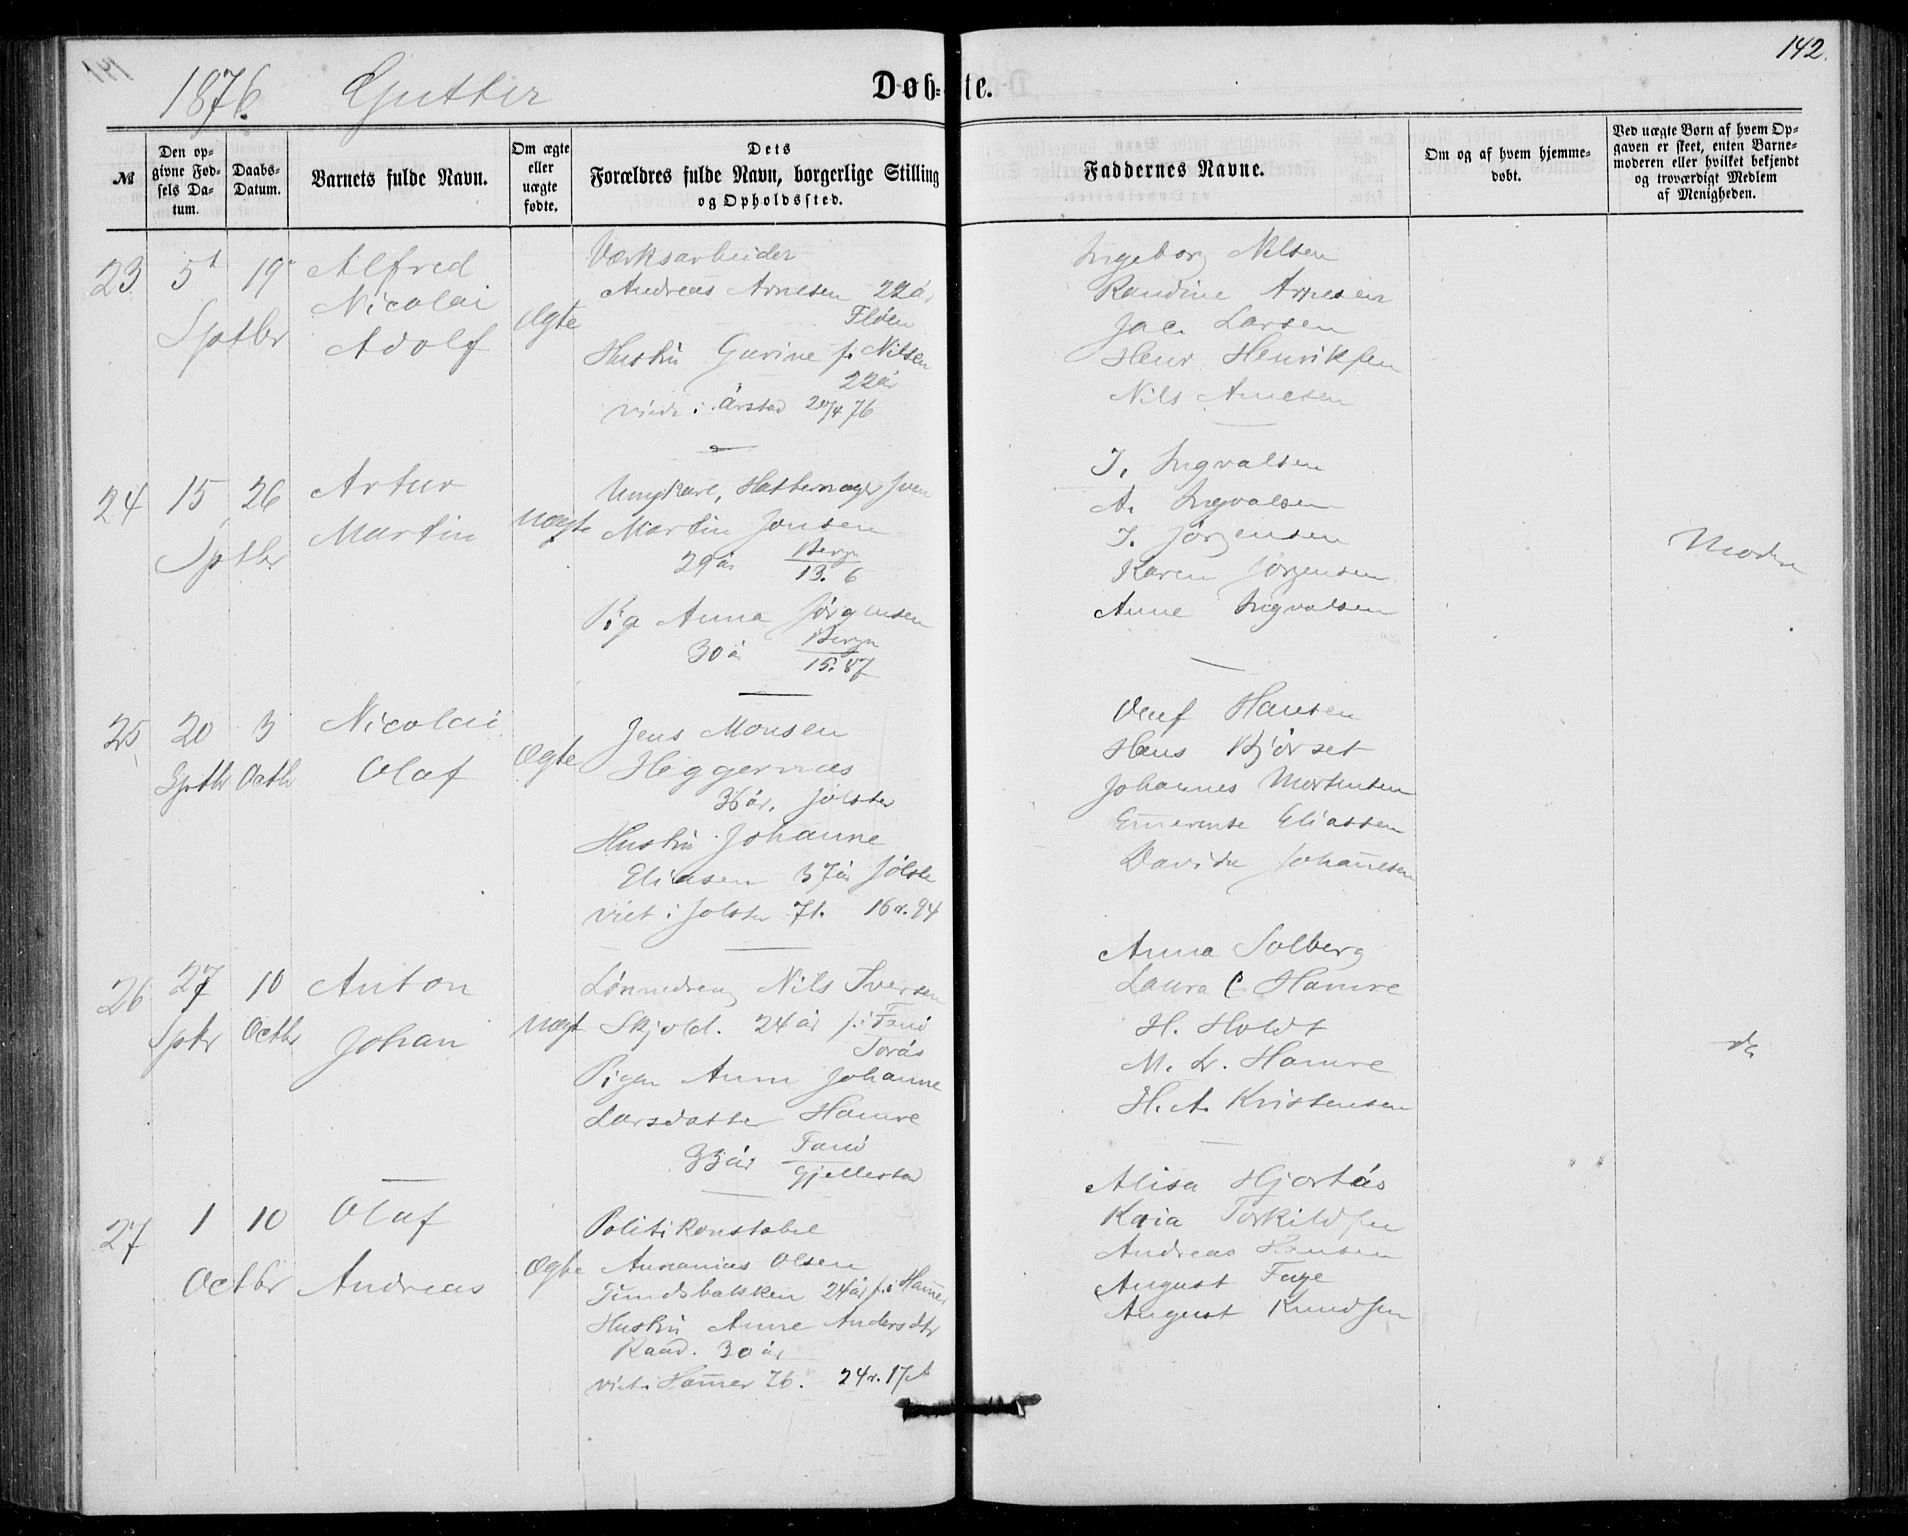 141
142.
1876. Gutter
Døb-te.
№
Den opgivne Fødsels Datum.
Daabs-Datum.
Barnets fulde Navn.
Om ægte eller uægte fødte.
Dets Forældres fulde Navn, borgerlige Stilling og Opholdssted.
Faddernes Navne.
Om og af hvem hjemmedøbt.
Ved uægte Børn af hvem Opgaven er skeet, enten Barnemoderen eller hvilket bekjendt og troværdigt Medlem af Menigheden.
23 5t Sptbr 19
Alfred
Nicolai
Adolf
Ægte
Værksarbeider
Andreas Arnesen 22 år
Fløen
Hustru Gurine f. Nilsen
22 år
viede i Årstad 20/4 76
Ingeborg Nilsen
Randine Arnesen
Jac. Larsen
Henr. Henriksen
Nils Arnesen
24 15 Sptbr 26
Artur
Martin
Uægte
Ungkarl, Hattemager Sven
Martin Jonsen
29 år Bergn 13. 6
Pig Anna Jørgensen
30 år Bergn 15. 87
I. Ingvalsen
A. Ingvalsen
J. Jørgensen
Karen Jørgensen
Anne Ingvalsen
Moder
25 20 Sptbr 3 Octbr
Nicolai
Olaf
Ægte
Jens Monsen
Heggernæs
36 år, Jølster
Hustru Johanne
Eliasen 37 år Jølste
viet i Jølster 71. 16 . 94
Oluf Hansen
Hans Bjørset
Johannes Mortensen
Emerense Eliassen
Davida Johannesen
26 27 Sptr 10 Octbr
Anton
Johan
Uægt
Nils Iversen
Skjold. 24 år f. i Fanø
Torås
Pigen Anna Johanne
Larsdatter Hamre
33 år Fanø
Gjellestad
Anna Solberg
Laura C Hamre
H. Holdt
M. L. Hamre
H. A. Kristensen
do
27 1 Octbr 10
Olaf
Andreas
Ægte
Politikonstabel
Annanias Olsen
Tundsbakken 24 år f. i Hammer
Hustru Anne Andersdtr
Raad. 30 år
viet i Hammer 76. 24 . 17
Alisa Hjortås
Kaia Torkildsen
Andreas Hansen
August Faye
August Knudsen